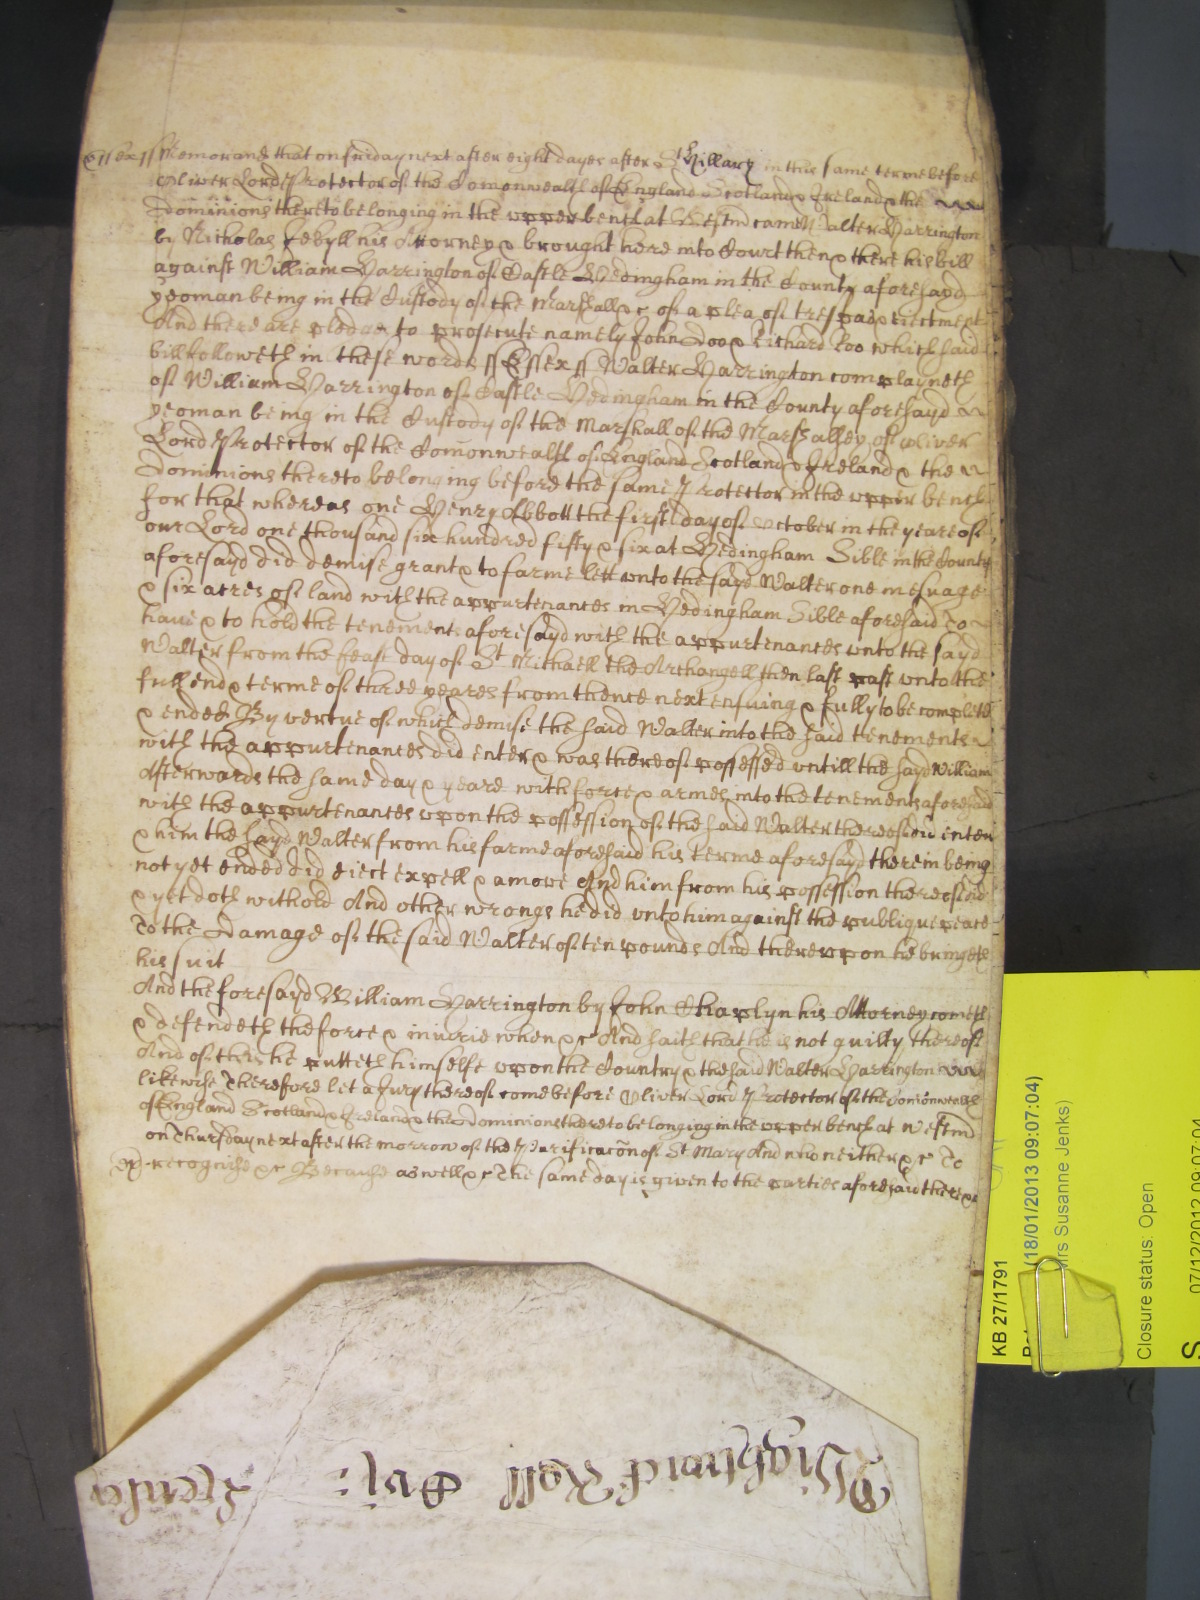 Essex ss Memorand that on friday next after eight dayes after St Hillary in this same terme before
Oliver Lord Protector of the Comonwealth of England Scotland & Ireland & the
dominions thereto belonging in the upper bench at Westm came Walter Harrington
by Nicholas Jekyll his Attorney & brought here into Court then & there his bill
against William Harrington of Castle Hedingham in the County aforesayd
yeoman being in the Custody of the Marshall &c of a plea of trespas & eiectment
And there are pledges to prosecute namely John Doo & Richard Roo which said
bill followeth in these words ss Essex ss Walter Harrington complayneth
of William Harrington of Castle Hedingham in the County aforesayd
yeoman being in the Custody of the Marshall of the Marshalsey of Oliver
Lord Protector of the Comonwealth of England Scotland & Ireland & the
dominions thereto belonging before the same Protector in the upper bench
for that whereas one Henry Abbott the first day of October in the yeare of
our Lord one thousand six hundred fifty & six at Hedingham Sible in the County
aforesayd did demise grant & to farme lett unto the sayd Walter one mesuage
& six acres of land with the appurtenances in Hedingham Sible aforesaid To
have & to hold the tenements aforesayd with the appurtenances unto the sayd
Walter from the feast day of St Michaell the Archangell then last past unto the
full end & terme of three yeares from thence next ensuing & fully to be compleate
& ended By vertue of which demise the said Walter into the said tenements
with the appurtenances did enter & was thereof possessed untill the sayd William
Afterwards the same day & yeare with force & armes into the tenements aforesaid
with the appurtenances upon the possession of the said Walter thereof did enter
& him the sayd Walter from his farme aforesaid his terme aforesayd therein being
not yet ended did eiect expell & amove And him from his possession thereof did
& yet doth withold And other wrongs he did unto him against the publique peace
To the damage of the said Walter of ten pounds And thereupon he bringeth
his suit
And the foresayd William Harrington by John Chaplyn his Attorney cometh
& defendeth the force & iniurie when &c And saith that he is not guilty thereof
And of this he putteth himselfe upon the Country & the said Walter Harrington
likewise Therefore let a Jury thereof come before Oliver Lord Protector of the Comonwealth
of England Scotland & Ireland & the dominions thereto belonging in the upper bench at Westmd
on Thursday next after the morrow of the Purificacon of St Mary And who neither &c To
recognise &c Because aswell &c The same day is given to the parties aforesaid there &c
KB 27/1791
(18/01/2013 09:07:04)
Mrs Susanne Jenks)
Closure status: Open
07/12/2012 09:07:04
Highward Roll